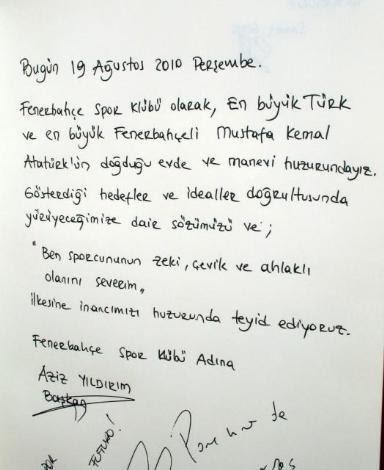 Bugün 19 Ağustos 2010 Perşembe.
Fenerbahçe Spor Klübü olarak, En büyük Türk
ve en büyük Fenerbahçeli Mustafa Kemal
Atatürk'ün doğduğu evde ve manevi huzurundayız.
Gösterdiği hedefler ve idealler doğrultusunda
yürüyeceğimize dair sözümüzü ve;
"Ben sporcunun zeki, çevik ve ahlaklı
olanını severim,
ilkesine inancımızı huzurunda teyid ediyoruz.
Fenerbahçe Spor Klübü Adına
Aziz YILDIRIM
Başkan